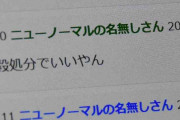 0 ニューノーマルの名無しさん 20
殺処分でいいやん
11 ニューノーマルの名無しさん 2